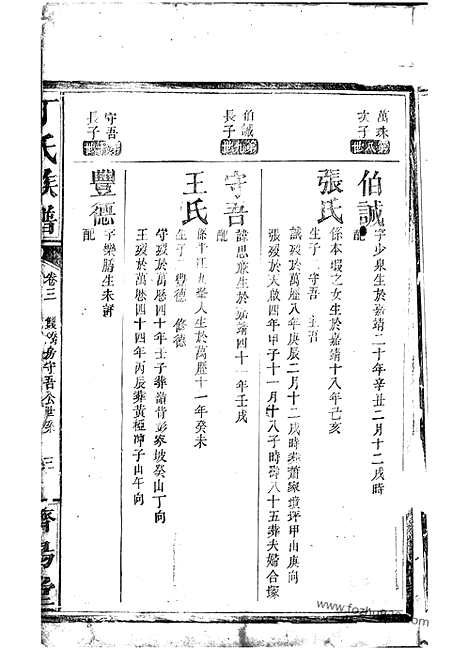 萬珠
次子
第八世
伯誠
字少泉生於嘉靖二十年辛丑二月十二戌時
配
張氏
係本邑之女生於嘉靖十八年己亥
生子 守吾 主吾
誠歿於萬歷八年庚辰二月十二戌時葬蕭家墳坪甲山庚向
張歿於天啟四年甲子十一月十八子時壽八十五葬夫婦合塚
伯誠
長子
第九世
守吾
諱思嚴生於嘉靖四十一年壬戌
配
王氏
係平江九峯人生於萬歷十一年癸未
生子 豐德 修德
守歿於萬歷四十年壬子葬 背彭家坡癸山丁向
王歿於萬歷四十四年丙辰葬黃極冲子山午向
守吾
長子
豐德
字樂膳生未詳
配
丁氏族譜
卷三
房守吾公世系
三
濟陽堂
www.fozhu920.com